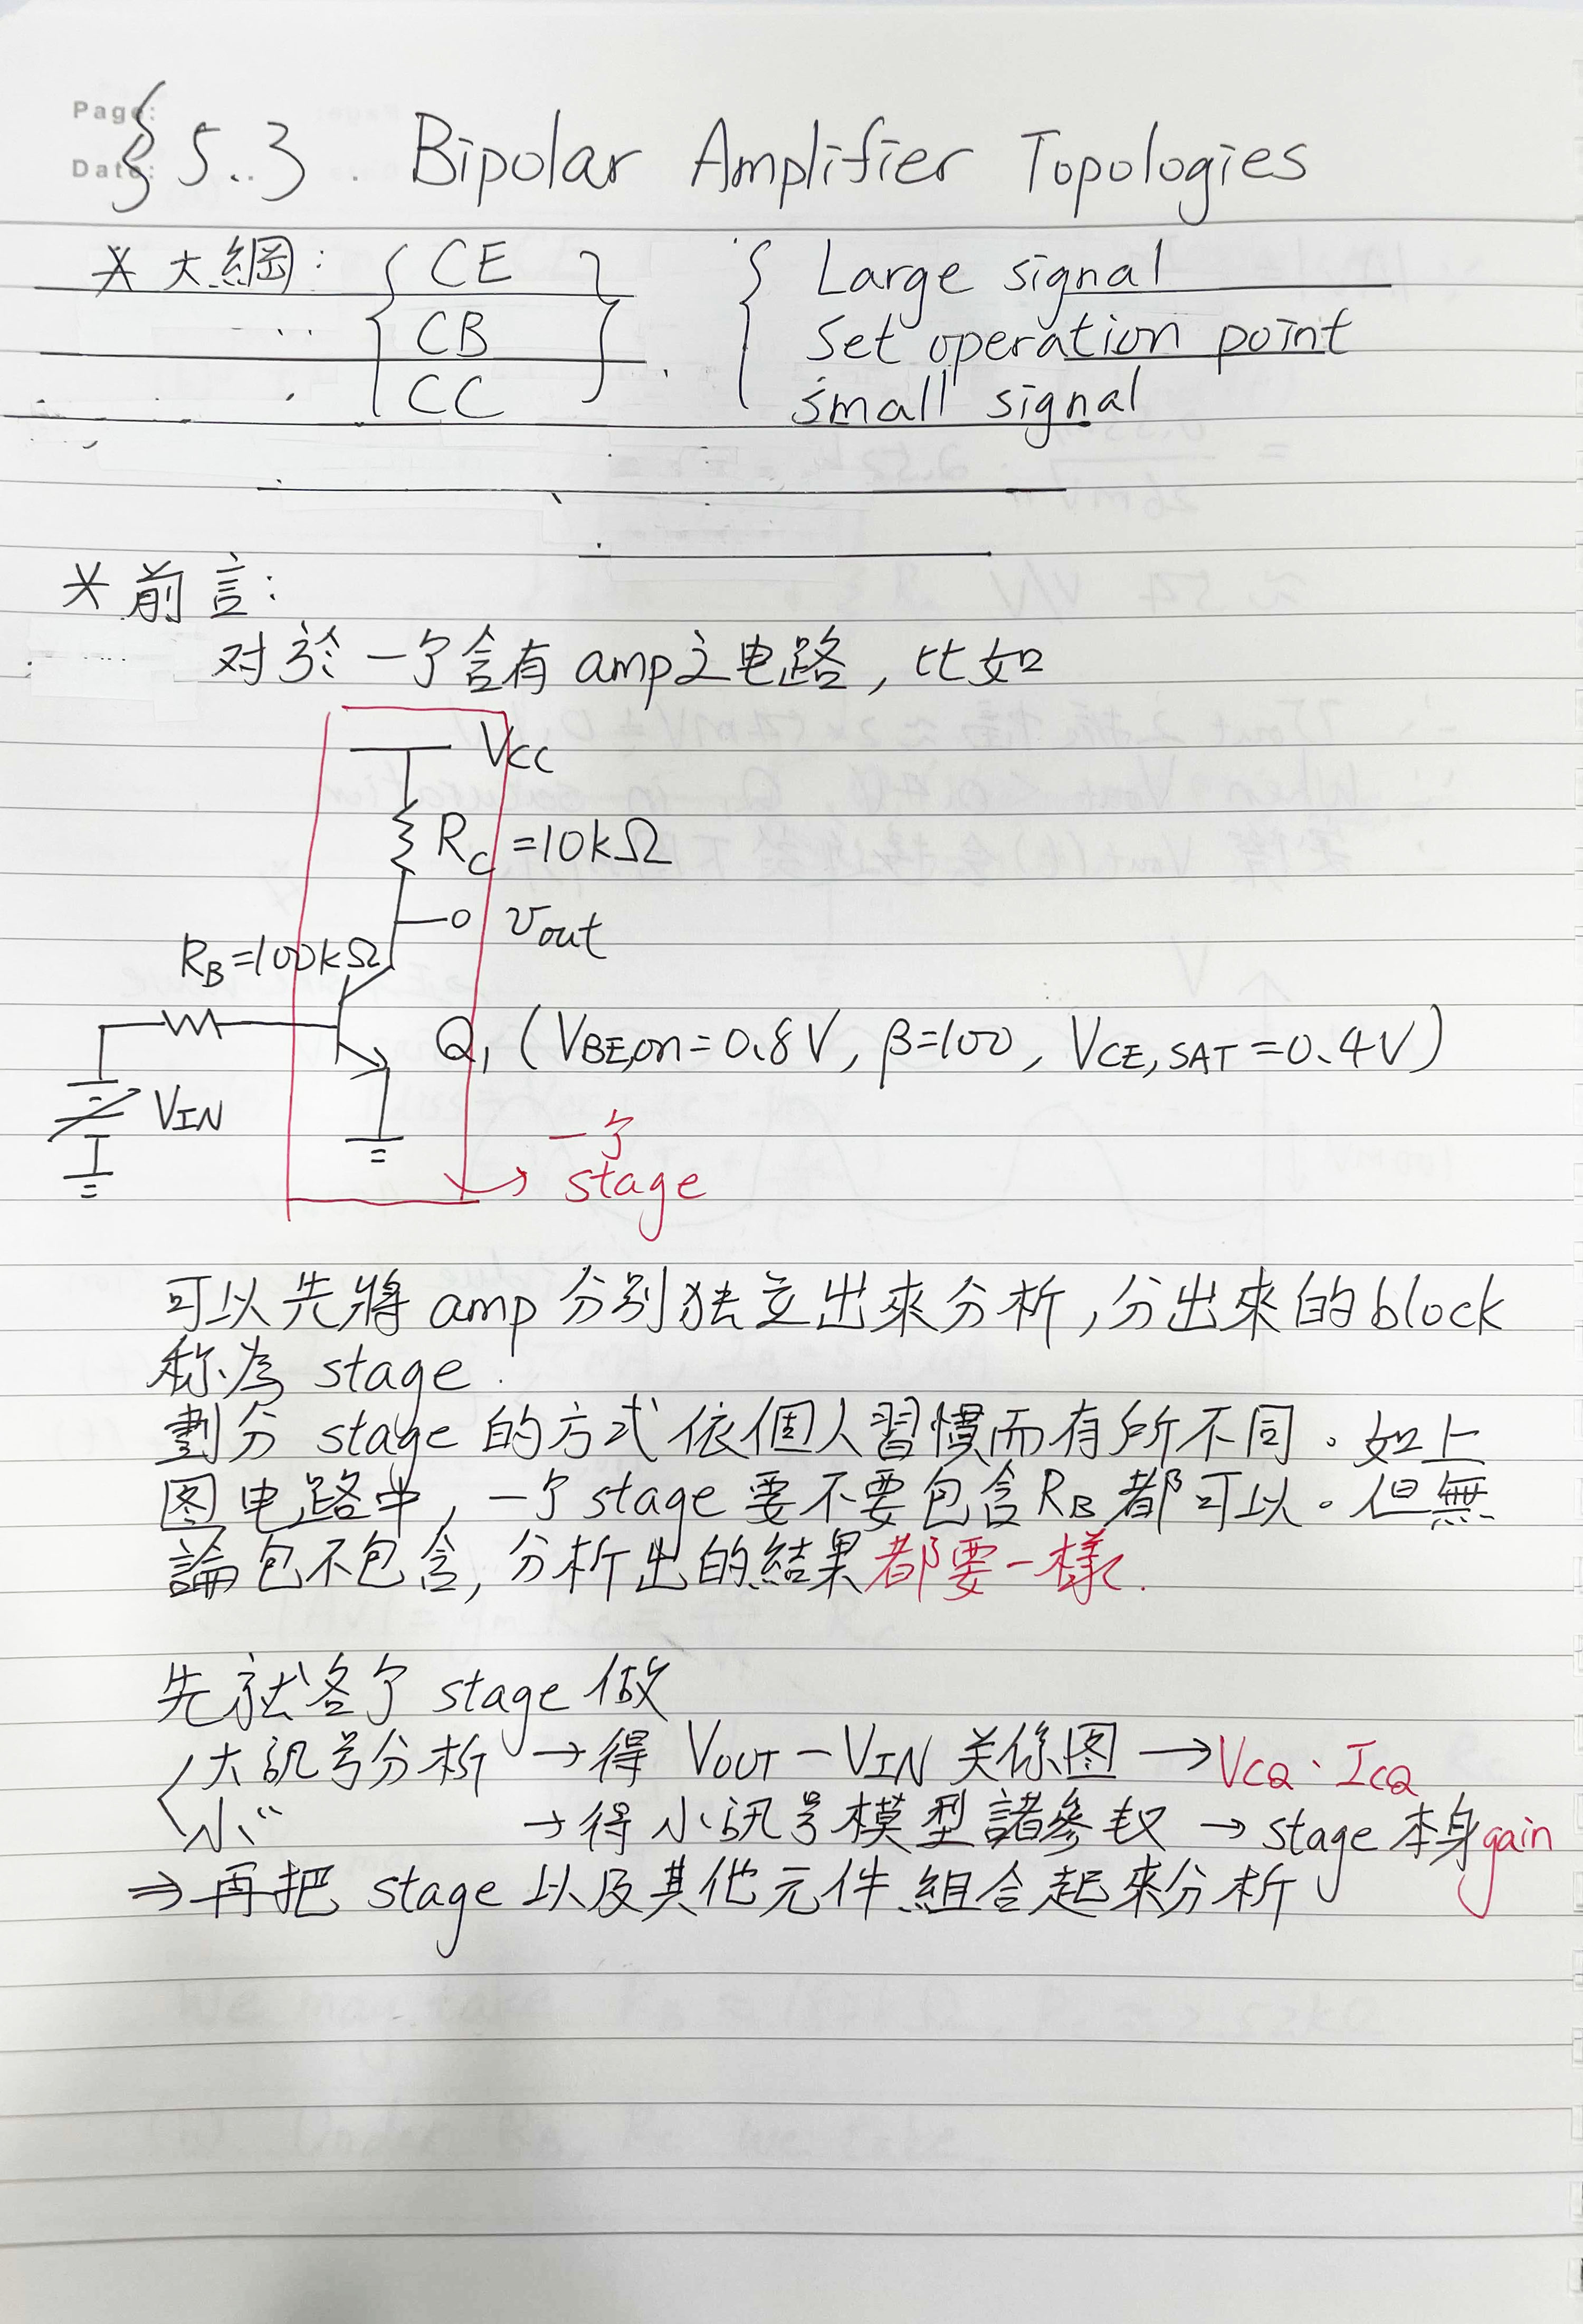 Page:
Date:
§5.3. Bipolar Amplifier Topologies
*大綱: CE Large signal
CB Set operation point
CC small signal
*前言:
对於一个含有amp之电路,比如
VCC
RC=10kΩ
vout
RB=100kΩ
Q1 (VBE,on=0.8V, β=100, VCE,SAT=0.4V)
VIN
一个
stage
可以先將amp分别独立出來分析,分出來的block
称為 stage.
劃分 stage 的方式依個人習慣而有所不同。如上
图电路中,一个stage要不要包含RB都可以。但無
論包不包含,分析出的結果都要一樣.
先就各个 stage 做
大訊号分析 → 得 VOUT-VIN 关係图 → VCQ、ICQ
小〃 → 得小訊号模型諸參数 → stage本身gain
⇒ 再把 stage 以及其他元件組合起來分析